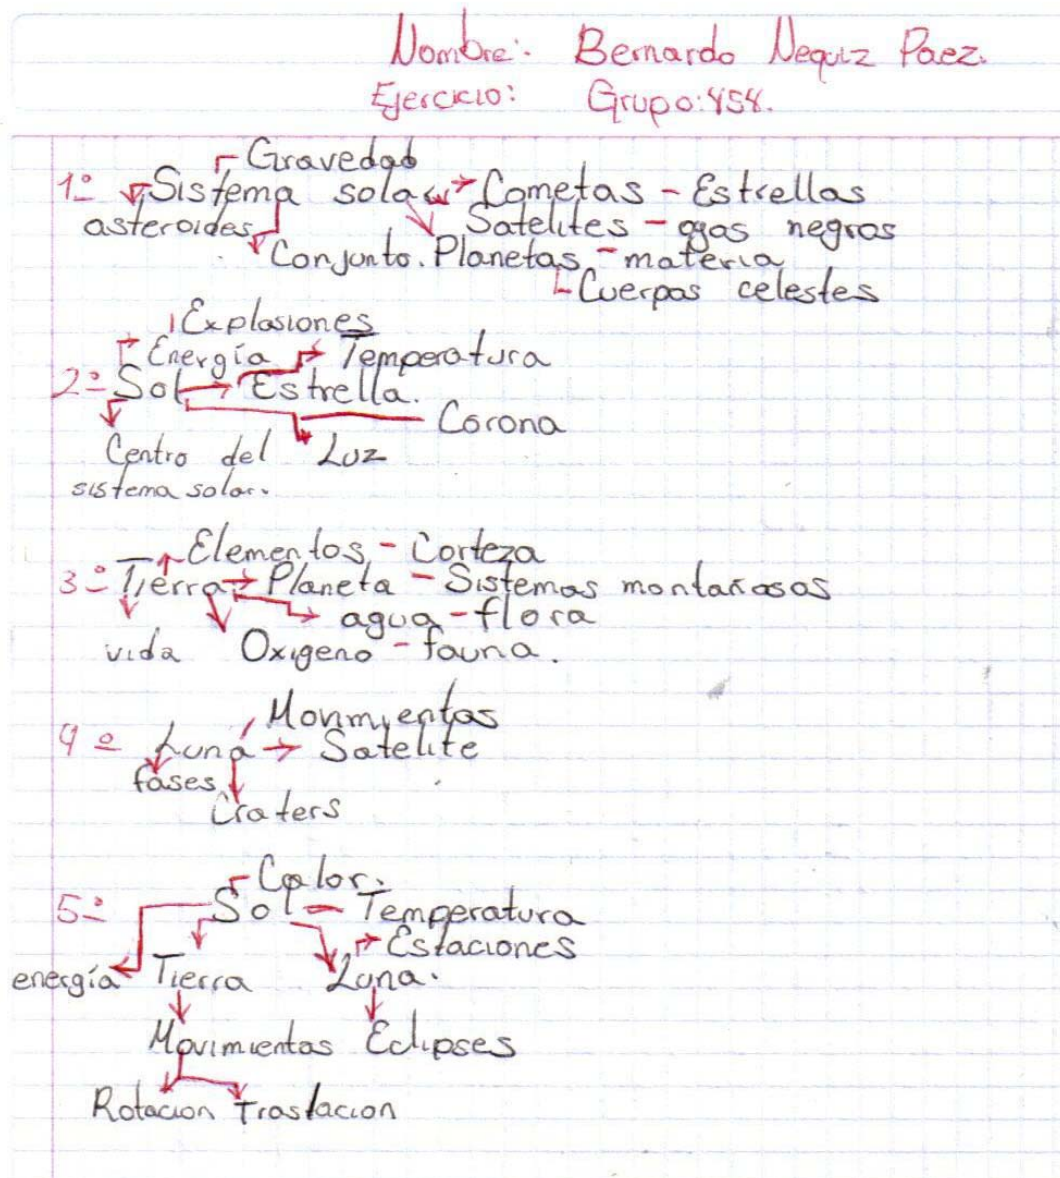 Nombre: Bernardo Nequiz Paez.
Ejercicio: Grupo: 454.
Gravedad
1º Sistema solar Cometas - Estrellas
asteroides Satelites - ogos negros
Conjunto. Planetas - materia
Cuerpos celestes
Explosiones
Energía Temperatura
2º Sol Estrella.
Corona
Centro del Luz
sistema solar.
Elementos - Corteza
3º Tierra Planeta - Sistemas montañosos
agua - flora
vida Oxigeno - fauna.
Movimientos
4º Luna Satelite
fases
Craters
Calor.
5º Sol Temperatura
Estaciones
energía Tierra Luna.
Movimientos Eclipses
Rotacion Traslacion